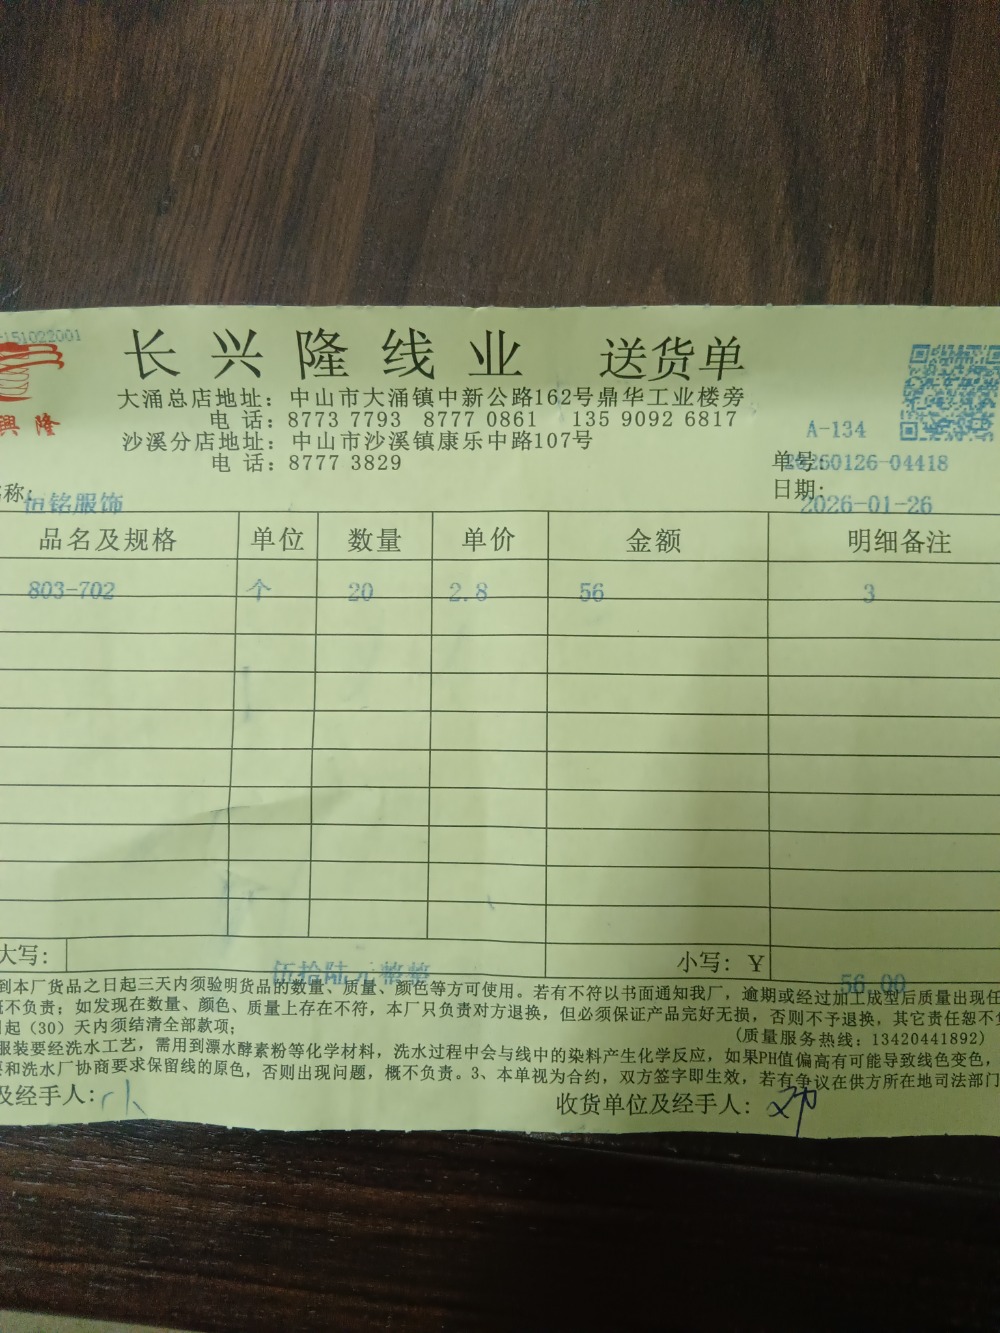 151022001
长兴隆线业 送货单
大涌总店地址：中山市大涌镇中新公路162号鼎华工业楼旁
电 话：8773 7793 8777 0861 135 9092 6817
沙溪分店地址：中山市沙溪镇康乐中路107号
电 话：8777 3829
興隆
A-134
单号：20260126-04418
日期：2026-01-26
称：恒铭服饰
品名及规格 单位 数量 单价 金额 明细备注
803-702 个 20 2.8 56 3
大写：伍拾陆元整整 小写：¥ 56.00
到本厂货品之日起三天内须验明货品的数量、质量、颜色等方可使用。若有不符以书面通知我厂，逾期或经过加工成型后质量出现任
概不负责；如发现在数量、颜色、质量上存在不符，本厂只负责对方退换，但必须保证产品完好无损，否则不予退换，其它责任恕不负
起（30）天内须结清全部款项；
（质量服务热线：13420441892）
服装要经洗水工艺，需用到漂水酵素粉等化学材料，洗水过程中会与线中的染料产生化学反应，如果PH值偏高有可能导致线色变色，
和洗水厂协商要求保留线的原色，否则出现问题，概不负责。3、本单视为合约，双方签字即生效，若有争议在供方所在地司法部门
及经手人：
收货单位及经手人：